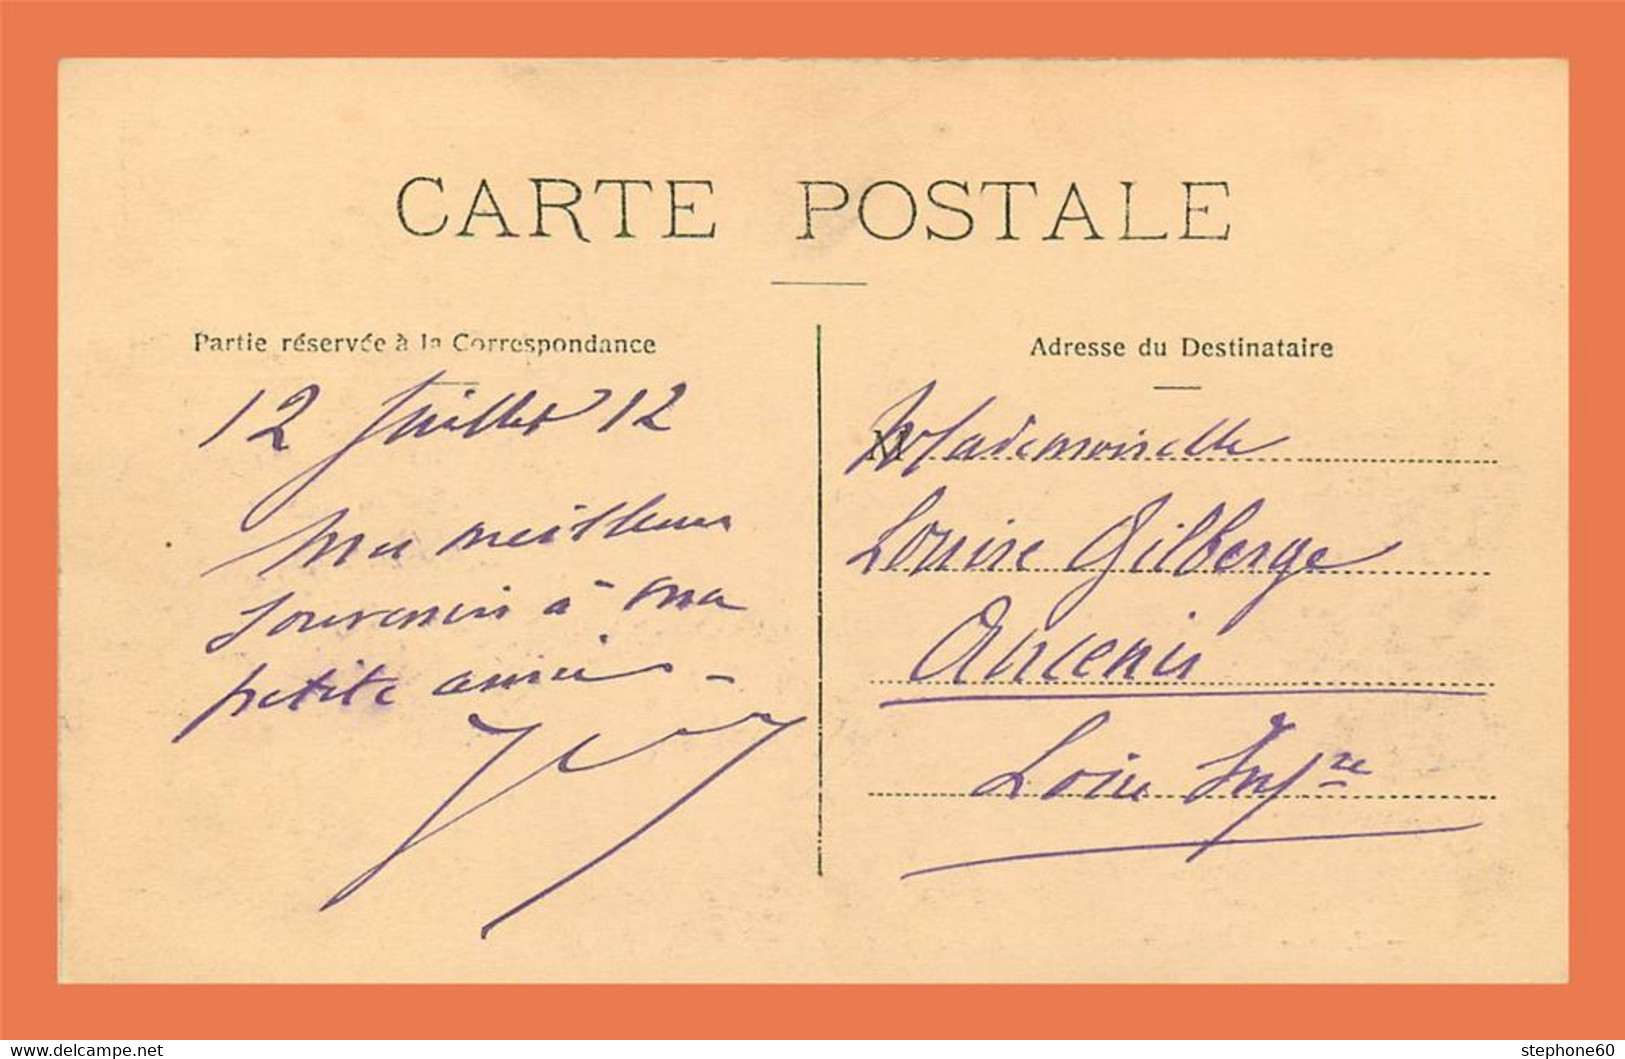 CARTE POSTALE
Partie réservée à la Correspondance
12 Juillet 12
Mon meilleur
souvenir à ma
petite amie -
Adresse du Destinataire
Mademoiselle
Louise Gilberge
Ancenis
Loire Infre
www.delcampe.net
stephone60